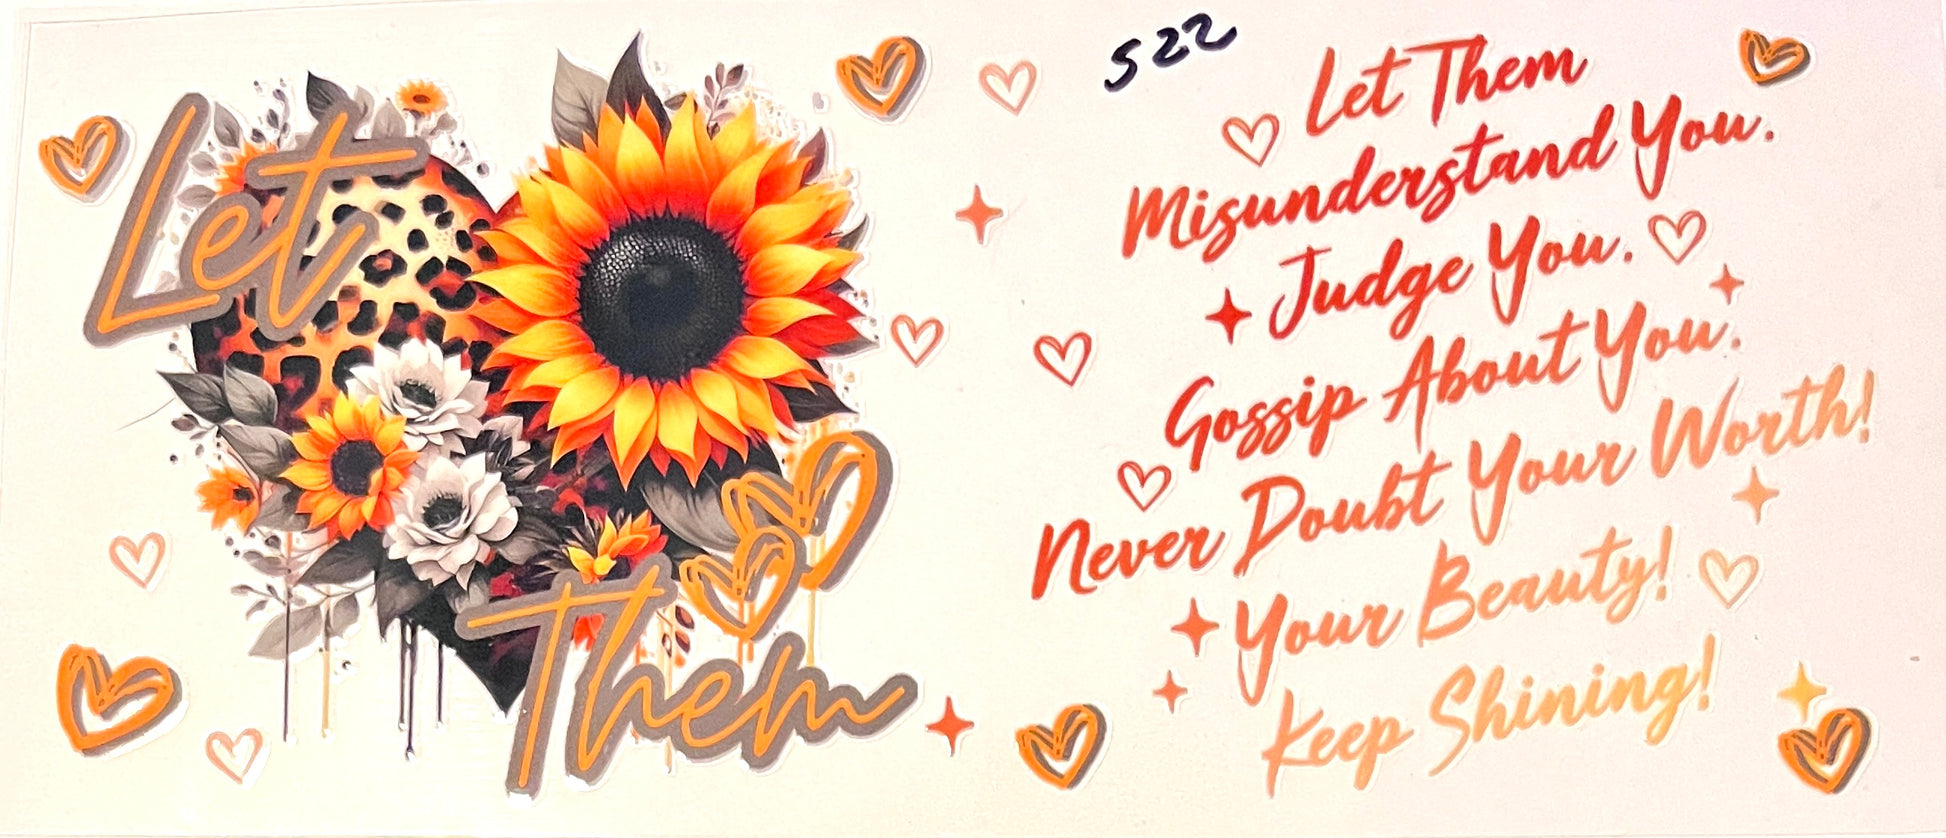 Let
Them
522
Let Them
Misunderstand You.
Judge You.
Gossip About You.
Never Doubt Your Worth!
Your Beauty!
Keep Shining!